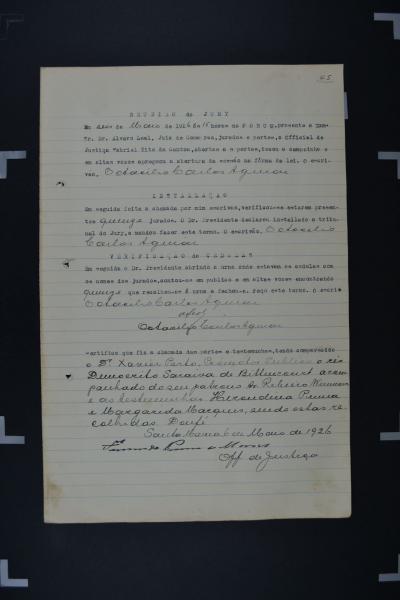 65
REUNIÃO do JURY
de Maio de 1926 ás 15 horas no FORUM, presente o Exm-
Sr. Dr. Alvaro Leal, Juiz da Comarca, jurados e partes, o Official de
Justiça Gabriel Tito da Santos, abertas as portas, tocou a campainha e
em altas vozes apregoou a abertura da sessão na fórma da lei. O escri-
vão, Octacilio Carlos Aguiar
INSTALLAÇÃO
Em seguida feita a chamada por mim escrivão, verificou-se estarem presen-
tes quinze jurados. O Dr. Presidente declarou installado o tribu-
nal do Jury, e mandou fazer este termo. O escrivão, Octacilio
Carlos Aguiar
VERIFICAÇÃO de CEDULAS
Em seguida o Dr. Presidente abrindo a urna onde estavam as cedulas com
os nomes dos jurados, contou-as em publico e em altas vozes encontrando
quinze que recolheu-se á urna e fechou-a. Faço este termo. O escrivão
Octacilio Carlos Aguiar
Octacilio Carlos Aguiar
Certifico que fiz a chamada das partes e testemunhas, tendo comparecido
o Dr. Xavier Porto, Promotor Publico o réo
Democrito Saraiva de Bittencourt acom-
panhado de seu patrono Dr. Ribeiro
e as testemunhas Hirondina
e Margarida Marques, sendo estas re-
colhidas. Doufé
Santa Maria 6 de Maio de 1926
Off de Justiça